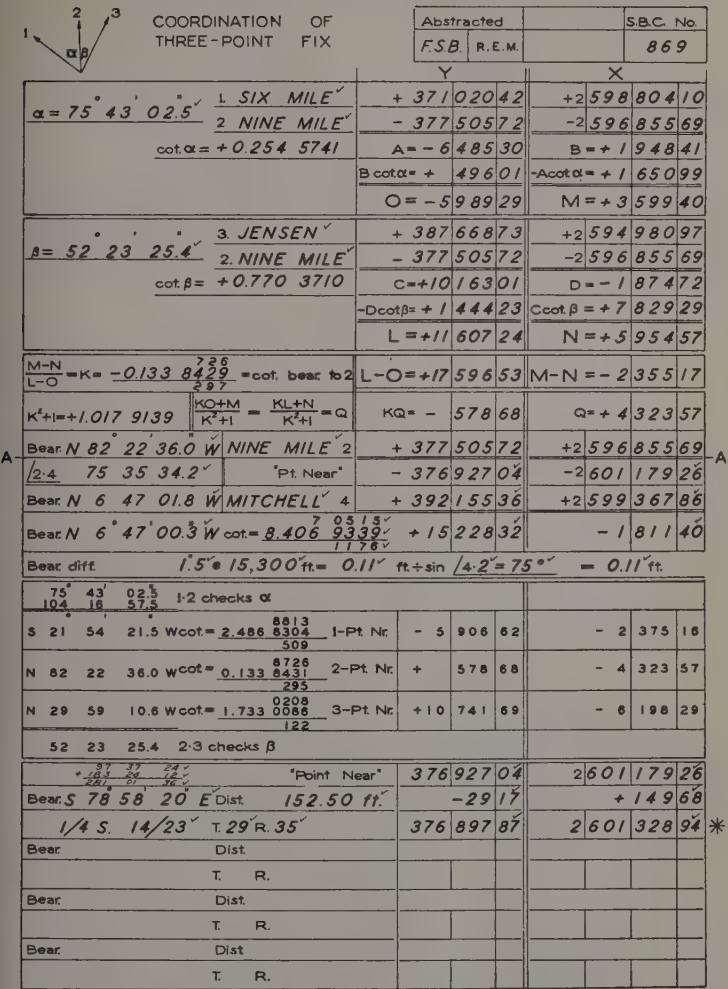 1 2 3 α β
COORDINATION OF
THREE-POINT FIX
Abstracted S.B.C. No.
F.S.B. R.E.M. 869
Y X
α = 75° 43' 02.5"✓ 1. SIX MILE✓ + 371 020 42 +2 598 804 10
2 NINE MILE✓ - 377 505 72 -2 596 855 69
cot. α = +0.254 5741 A = - 6 485 30 B = + 1 948 41
B cot α = + 496 01 -A cot α = + 1 650 99
O = -5 989 29 M = +3 599 40
β = 52° 23' 25.4"✓ 3. JENSEN✓ + 387 668 73 +2 594 980 97
2. NINE MILE✓ - 377 505 72 -2 596 855 69
cot β = +0.770 3710 C=+10 163 01 D = - 1 874 72
-D cot β = + 1 444 23 C cot β = +7 829 29
L = +11 607 24 N = +5 954 57
M-N / L-O = K = -0.133 8429 726 297 = cot. bear. to 2 L-O=+17 596 53 M-N = - 2 355 17
K²+1=+1.017 9139 KO+M / K²+1 = KL+N / K²+1 = Q KQ = - 578 68 Q = + 4 323 57
Bear. N 82° 22' 36.0" W NINE MILE 2 + 377 505 72 +2 596 855 69
A A
/2·4 75 35 34.2✓ "Pt. Near" - 376 927 04✓ -2 601 179 26✓
Bear. N 6 47 01.8 W✓ MITCHELL✓ 4 + 392 155 36✓ +2 599 367 86✓
Bear. N 6° 47' 00.3" W✓ cot = 8.406 9339✓ 7 0515✓ 1176✓ + 15 228 32✓ - 1 811 40✓
Bear. diff. 1.5"✓ @ 15,300✓ ft. = 0.11✓ ft. ÷ sin /4·2✓ = 75°✓ = 0.11✓ ft.
75° 43' 02.5" 1·2 checks α
104 16 57.5
S 21 54 21.5 W cot. = 2.486 8304 8813 509 1-Pt. Nr. - 5 906 62 - 2 375 16
N 82 22 36.0 W cot = 0.133 8431 8726 295 2-Pt. Nr. + 578 68 - 4 323 57
N 29 59 10.6 W cot = 1.733 0086 0208 122 3-Pt. Nr. +10 741 69 - 6 198 29
52 23 25.4 2·3 checks β
97 37 24✓
+ 183 24 12✓
281 01 36✓
"Point Near" 376 927 04✓ 2 601 179 26✓
Bear. S 78° 58' 20" E✓ Dist. 152.50 ft.✓ -29 17✓ + 149 68✓
1/4 S. 14/23✓ T. 29✓ R. 35✓ 376 897 87✓ 2 601 328 94✓ *
Bear. Dist.
T. R.
Bear. Dist.
T. R.
Bear. Dist
T. R.